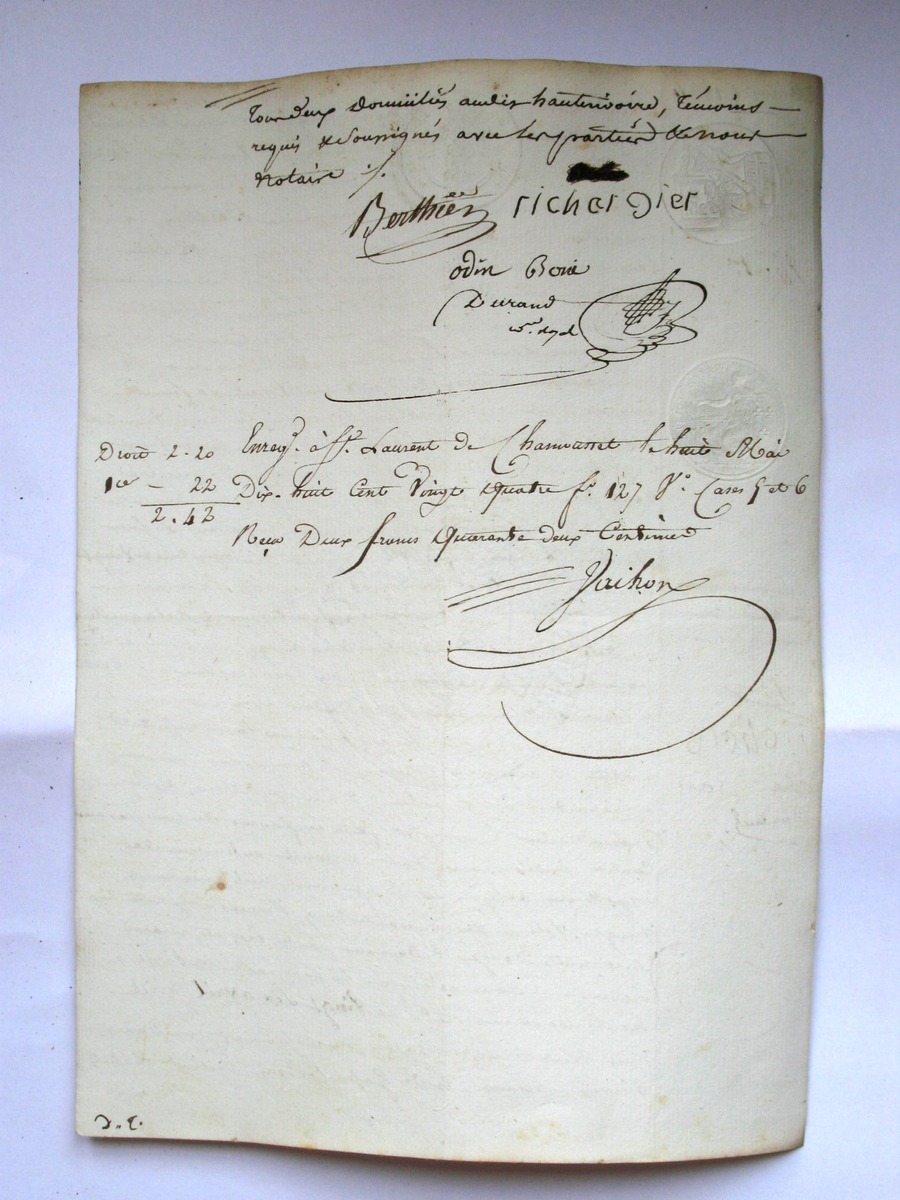 Tous deux domiciliés audit hauterivoire, Témoins
requis & Soussignés avec les parties & nous
Notaire ./.
Berthier richardier
odin
Durand
nre. royal
Enregt. à St. Laurent de Chamousset le huit Mai
Droit 2. 20
Dix. huit Cent Vingt quatre fo. 127 Vo. Cases 5 et 6
1e — 22
2. 42
Reçu Deux francs Quarante deux Centimes
D. E.